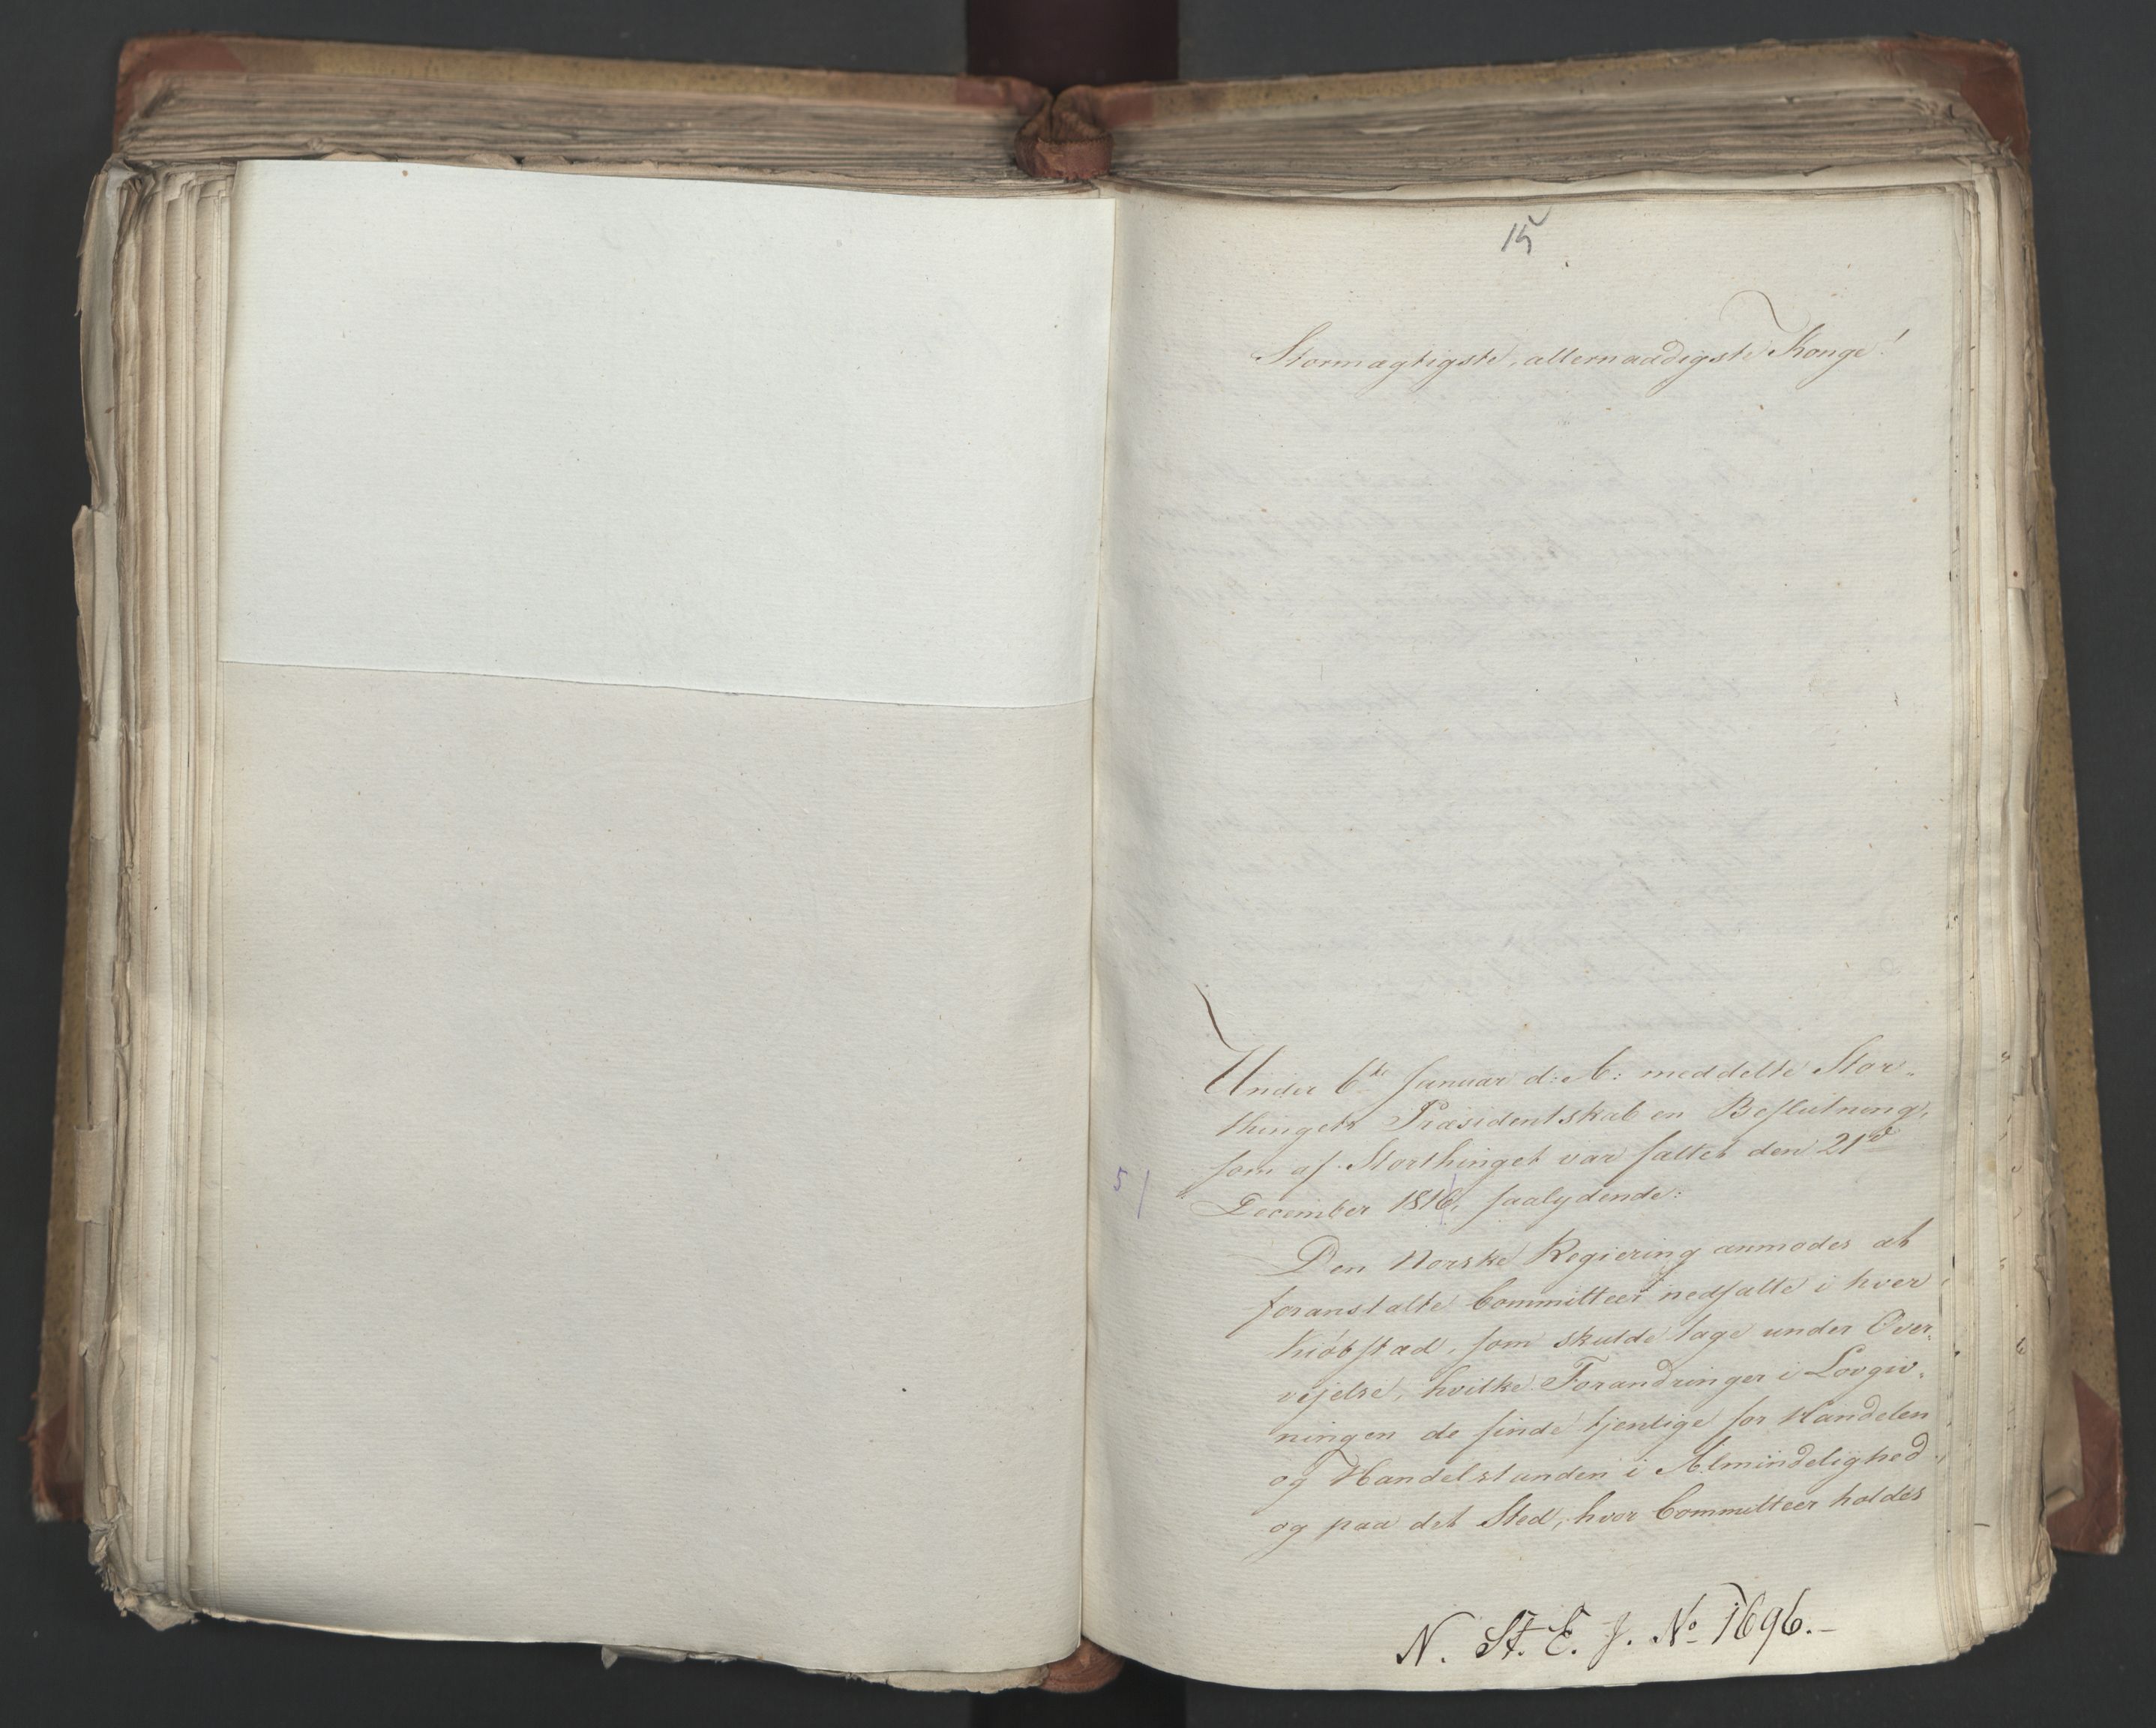 15
Stormægtigste, allernaadigste Konge!
Under 6te Januar d: A: meddelte Stor-
thingets Præsidentskab en Beslutning,
som af Storthinget var fattet den 21de
5/
December 1816, saalydende:
Den Norske Regiering anmodes at
foranstalte Committeer nedsatte i hver
Kiöbstad, som skulde tage under Over-
vejelse, hvilke Forandringer i Lovgiv-
ningen de finde tjenlige for Handelen
og Handelstanden i Almindelighed
og paa det Sted, hvor Committeer holdes
N. St. E. J. No 1696.-